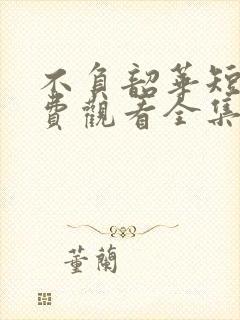 不負韶華短
費觀看全集
董蘭